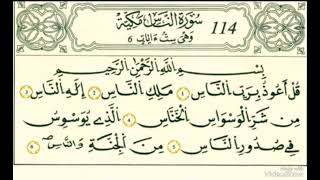 سُورَةُ النَّاسِ مَكِّيَّة 114
وَهِيَ سِتُّ ءَايَاتٍ 6
بِسْمِ اللَّهِ الرَّحْمَنِ الرَّحِيمِ
قُلْ أَعُوذُ بِرَبِّ النَّاسِ ١ مَلِكِ النَّاسِ ٢ إِلَهِ النَّاسِ ٣
مِن شَرِّ الْوَسْوَاسِ الْخَنَّاسِ ٤ الَّذِي يُوَسْوِسُ
فِي صُدُورِ النَّاسِ ٥ مِنَ الْجِنَّةِ وَالنَّاسِ ٦